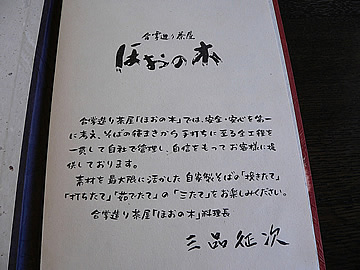 合掌造り茶屋
ほおの木
合掌造り茶屋「ほおの木」では、安全・安心を第一
に考え、そばの種まきから手打ちに至る全工程を
一貫して自社で管理し、自信をもってお客様に提
供しております。
素材を最大限に活かした自家製そばの「挽きたて」
「打ちたて」「茹でたて」の「三たて」をお楽しみください。
合掌造り茶屋「ほおの木」料理長
三品征次